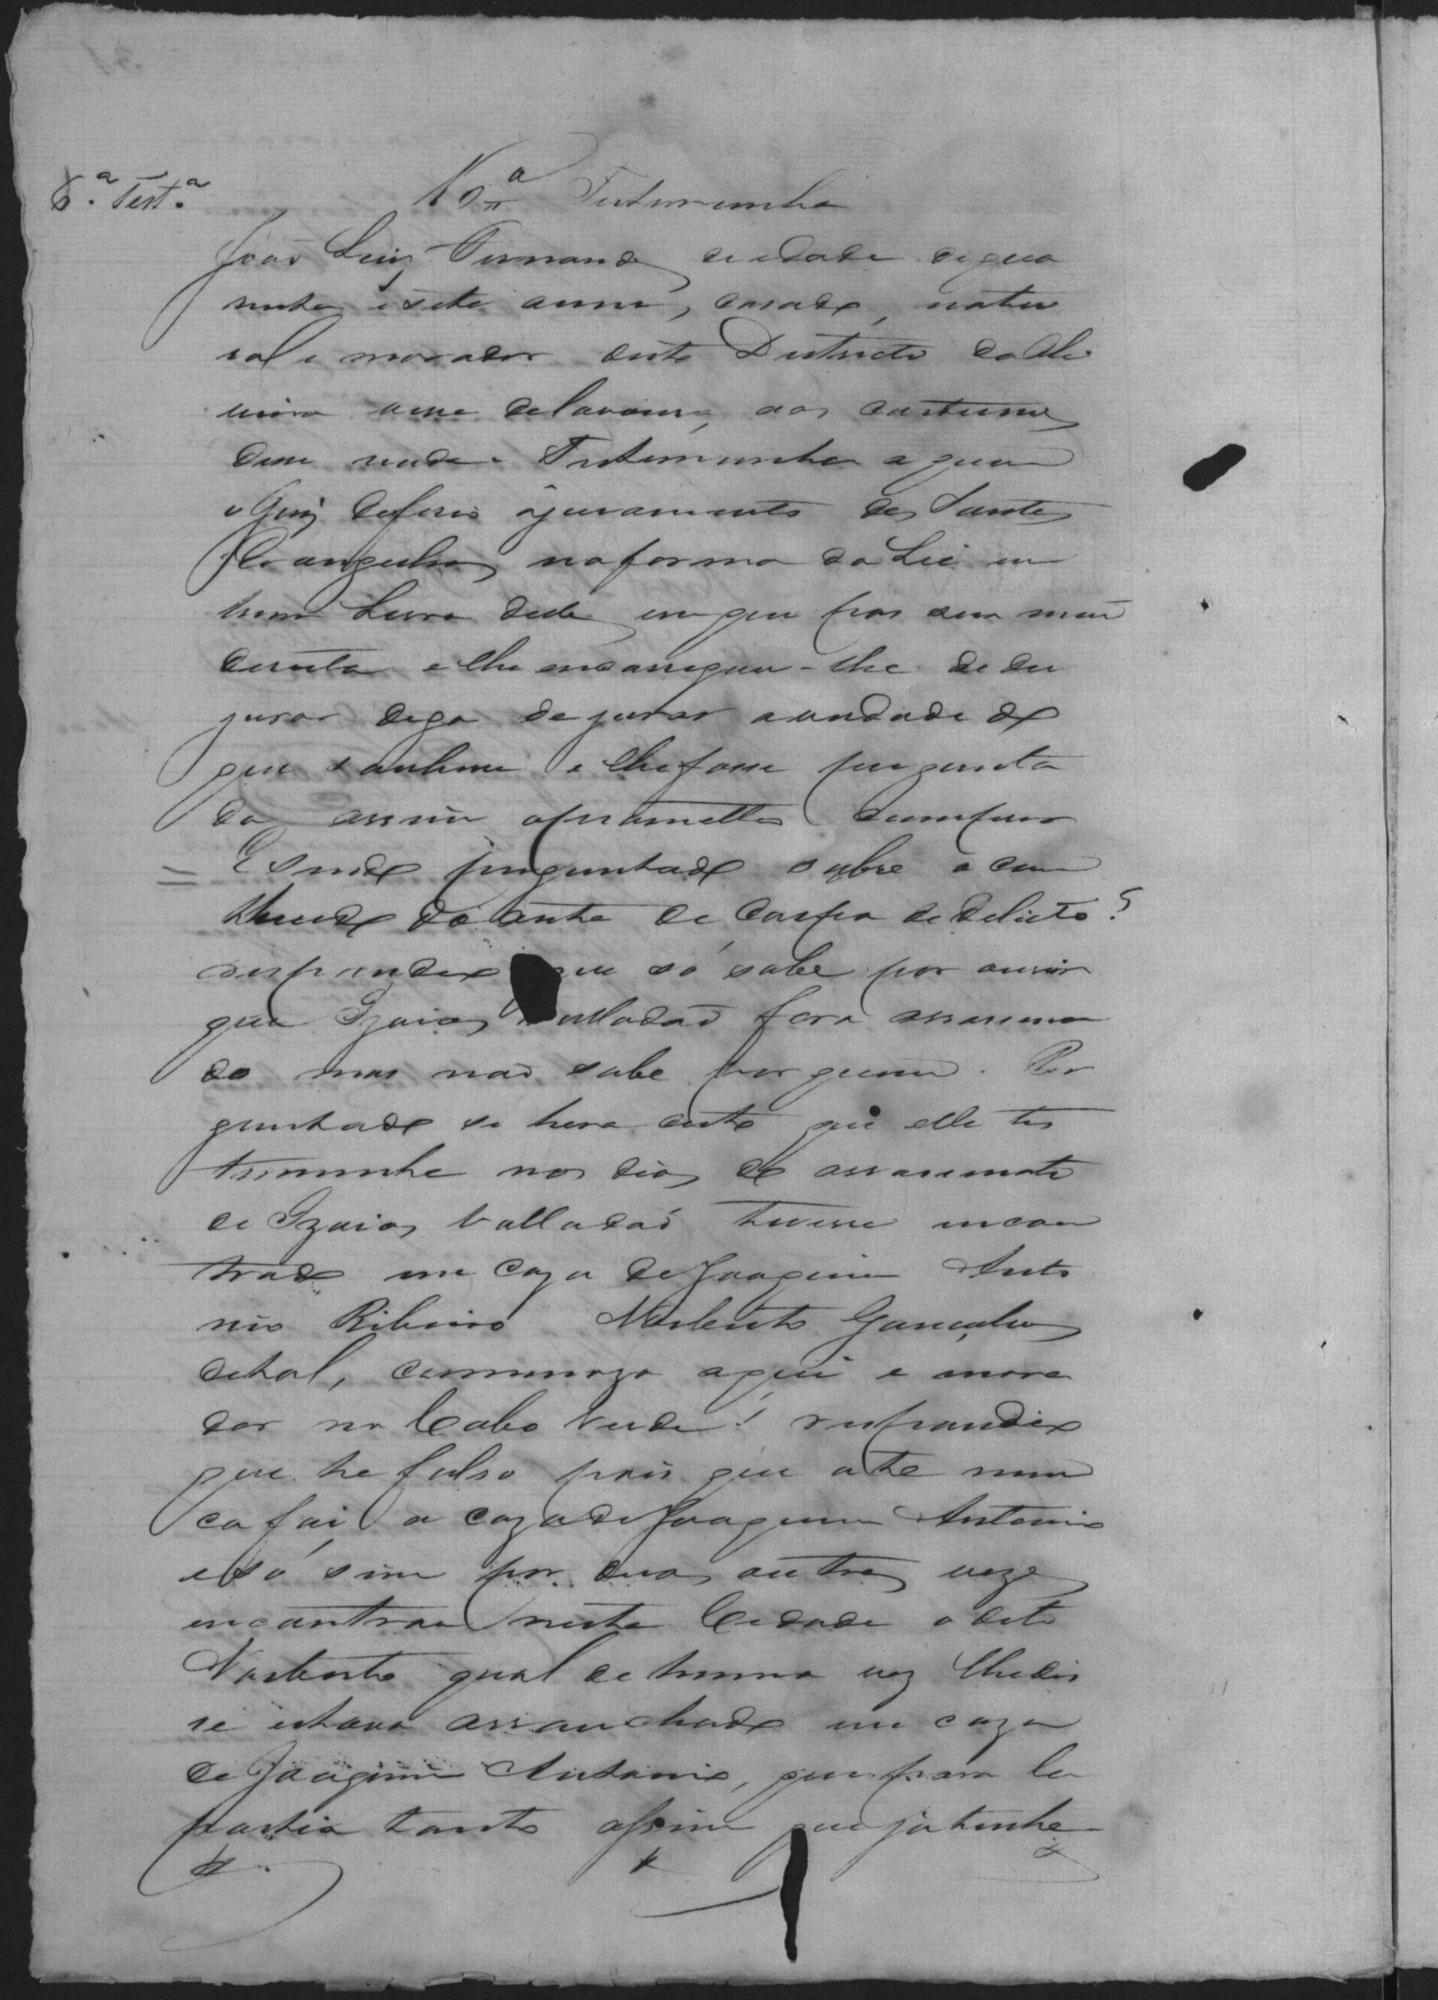 8.ª Test.ª
Nª Testemunha
João Luis Fernands de edade de qua
renta e sete annos, casado, natu
ral e morador deste Districto da Al
vive de lavoura, aos custumes
disse nada. Testemunha a quem
o Juiz deferio o juramento dos Santos
Evangelhos na forma da Lei em
hum Livro delles em que pos sua mão
direita e lhe encarregou-lhe de de
jurar digo de jurar a verdade do
que soubesse e lhe fosse pergunta
do assim o prometteo cumprir
= E sendo perguntado sobre o con
theudo do auto de Corpo de delicto?
respondeo que só sabe por ouvir
que Izaias Valladaõ fora assassina
do mas naõ sabe por quem. Per
guntado se hera certo que elle tes
temunha nos dias do assassinato
de Izaias Valladaõ tivesse encon
trado em caza de Joaquim Anto
nio Ribeiro Norberto Gonçalves
de tal, aqui e mora
dor no Cabo Verde? respondeo
que he falso pois que athe nun
ca foi a caza de Joaquim Antonio
e só sim por duas outres vezes
encontrou nesta Cidade o dito
Norberto qual de huma vez lhe dis
se estava arranchado em caza
de Joaquim Antonio, que para la
partia tanto assim que ja tinha